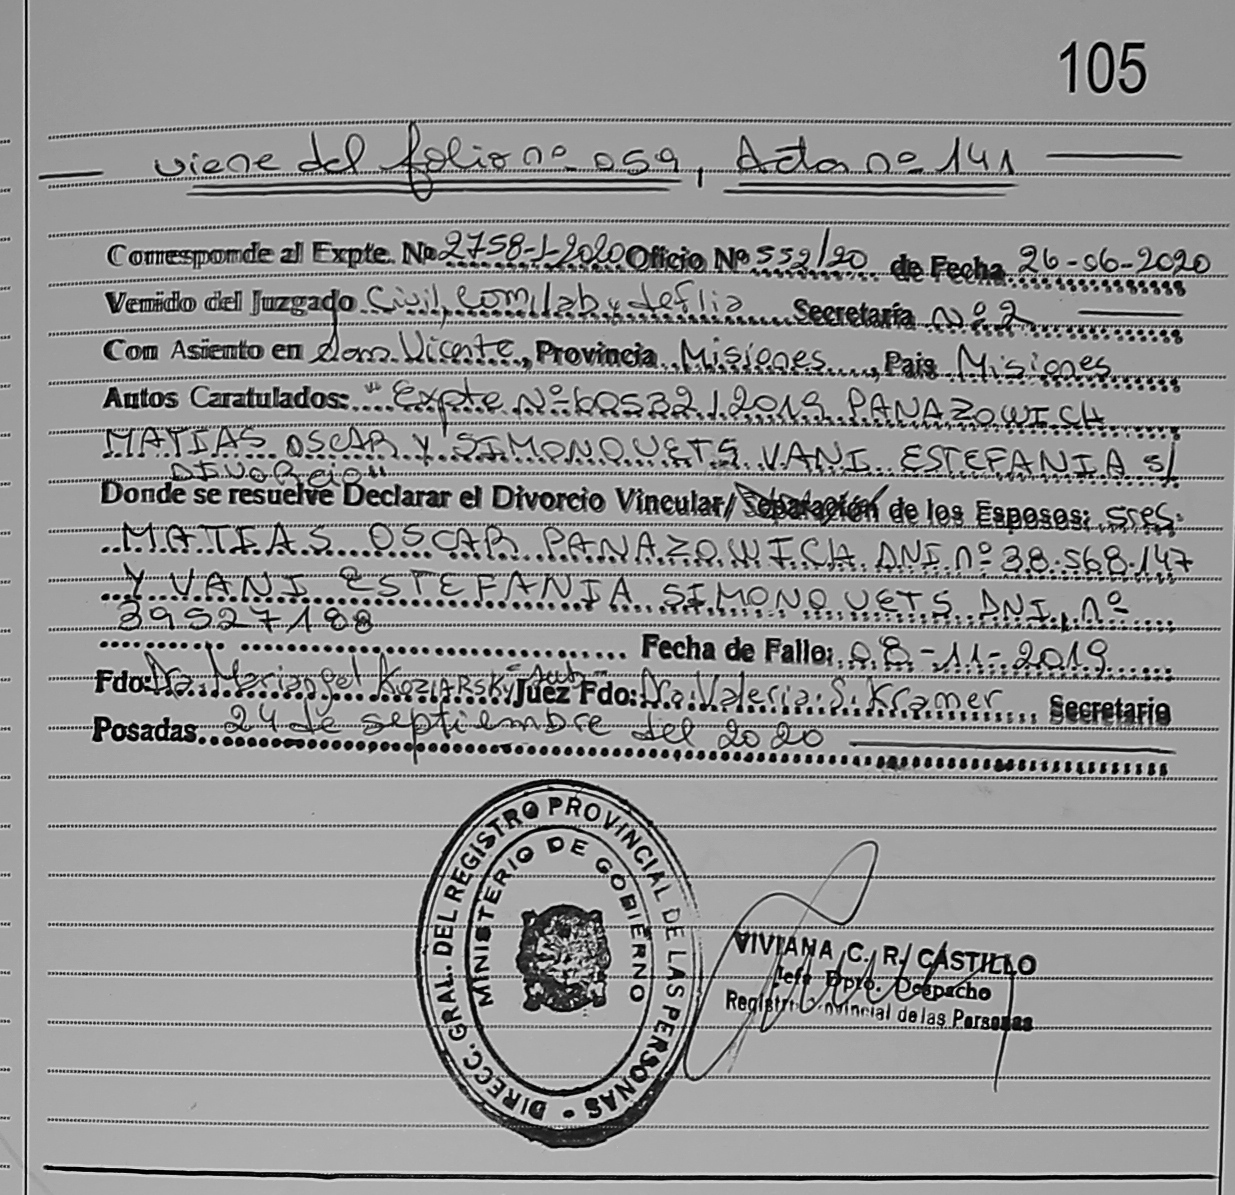 105
viene del folio nº 059, Acta nº 141
Corresponde al Expte. Nº 2758-J-2020 Oficio Nº 552/20 de Fecha 26-06-2020
Venido del Juzgado Civil, Com, lab y de flia Secretaría Nº 2
Con Asiento en San Vicente, Provincia Misiones, Pais Misiones
Autos Caratulados: "Expte Nº 60532/2019 PANAZOWICH
MATIAS OSCAR Y SIMONQUETS VANI ESTEFANIA s/
DIVORcio"
Donde se resuelve Declarar el Divorcio Vincular/Separación de los Esposos: sres:
MATIAS OSCAR PANAZOWICH DNI nº 38.568.147
Y VANI ESTEFANIA SIMONQUETS DNI, nº
39527188
Fecha de Fallo: 08-11-2019
Fdo: Dra. Mariangel KOZIARSKY Juez Fdo: Dra. Valeria S. Kramer Secretario
Posadas 24 de septiembre del 2020
DIRECC. GRAL. DEL REGISTRO PROVINCIAL DE LAS PERSONAS
MINISTERIO DE GOBIERNO
VIVIANA C. R. CASTILLO
Jefe Dpto. Despacho
Registro Provincial de las Personas